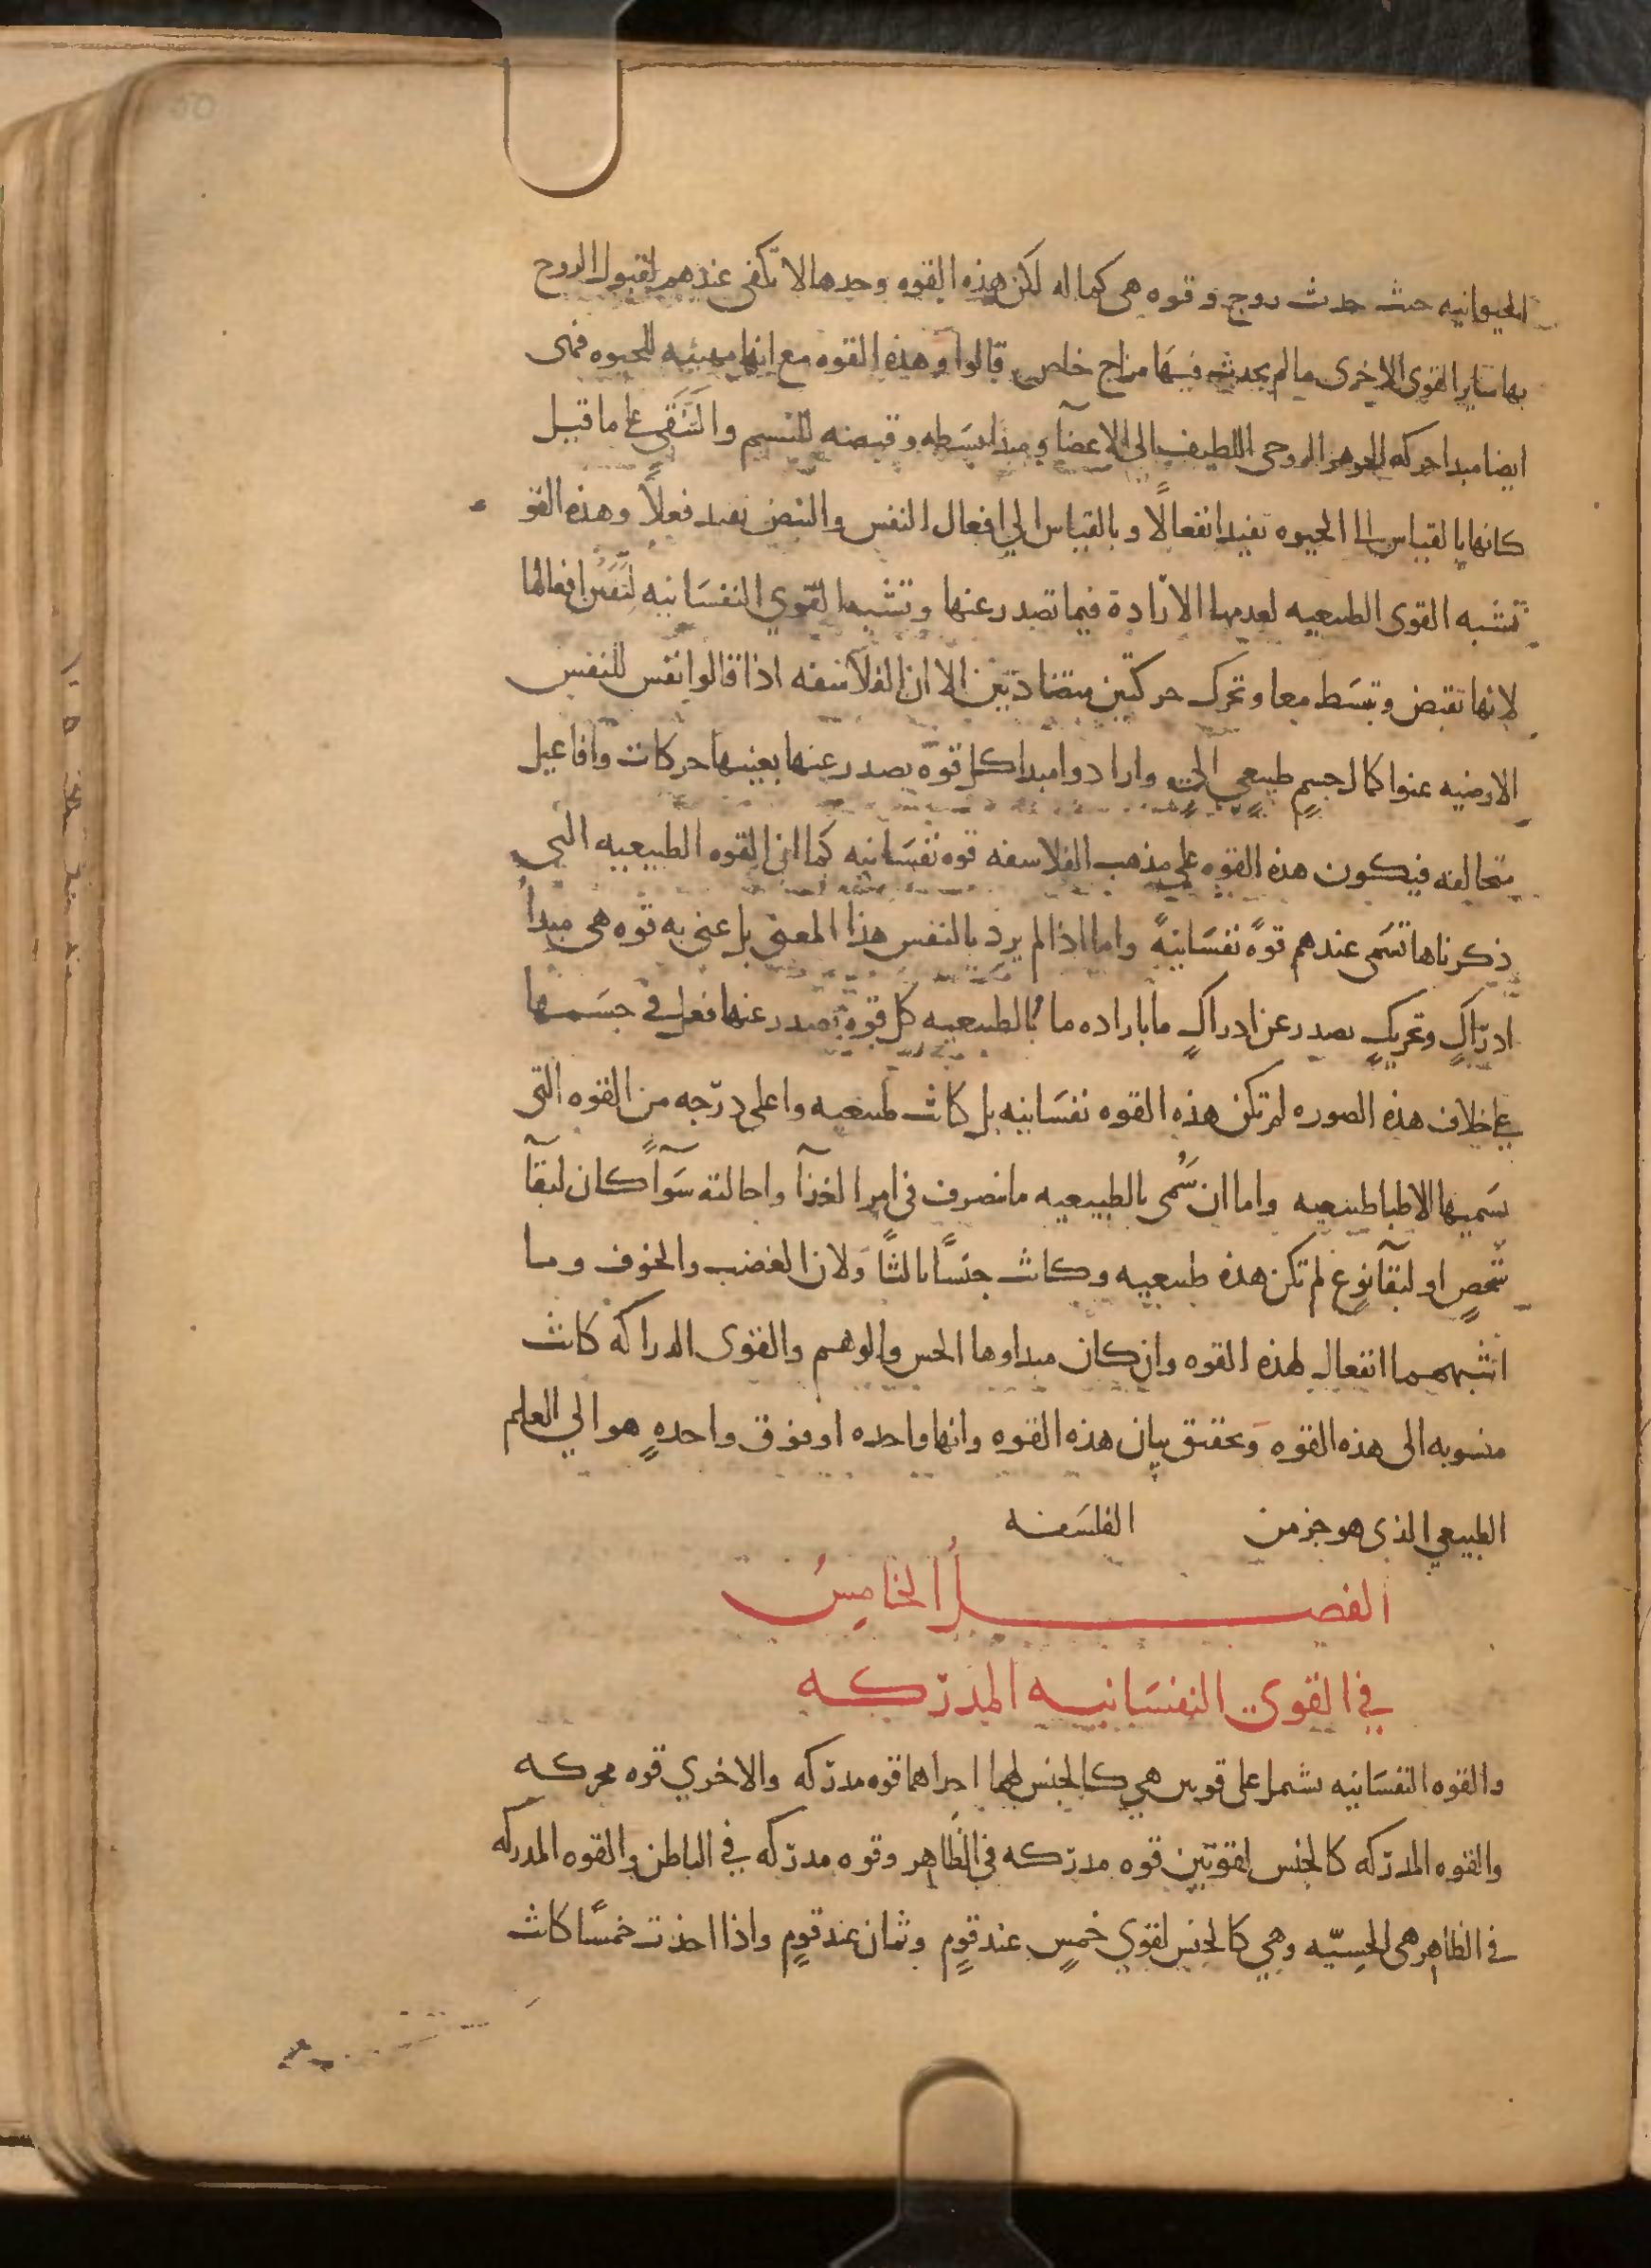 الحيوانيه حىث حدث روح وقوه هى كماله لكن هذه القوه وحدها لا تكفى عندهم لقبول الروح
بها ساير القوى الاخرى ما لم يحدث فيها مزاج خاص قالوا وهذه القوه مع انها مهيئه للحيوه فهى
ايضا مبدا حركه الجوهر الروحى اللطيف الى الاعضآ ومبدا بسطه وقبضه للتنسم والتنقى على ما قيل
كانها بالقياس الى الحيوه تفيد انفعالًا وبالقياس الي افعال النفس والنبض تفيد فعلاً وهذه القو
تشبه القوى الطبيعيه لعدمها الارادة فيما تصدر عنها وتشبه القوي النفسانيه لتفنن افعالها
لانها تقبض وتبسط معا وتحرك حركتين متضادتين الا ان الفلاسفه اذا قالوا نفس للنفس
الارضيه عنوا كمال جسمٍ طبيعىٍ الىٍ وارادوا مبدا كل قوّه يصدر عنها بعينها حركات وافاعيل
متخالفه فيكون هذه القوه على مذهب الفلاسفه قوه نفسانيه كما ان القوه الطبيعيه التى
ذكرناها تسمى عندهم قوهً نفسانيهً واما اذا لم يرد بالنفس هذا المعنى بل عنى به قوه هى مبدأ
ادراكٍ وتحريكٍ يصدر عن ادراكٍ ما باراده ما وبالطبيعيه كل قوه يصدر عنها فعل فى جسمها
على خلاف هذه الصوره لم تكن هذه القوه نفسانيه بل كانت طبيعيه واعلى درجه من القوه التى
يسميها الاطبا طبيعيه واما ان سُمى بالطبيعيه ما يتصرف فى امر الغذآ واحالته سوآً كان لبقآ
شخصٍ او لبقآ نوعٍ لم تكن هذه طبيعيه وكانت جنسًا ثالثًا ولان الغضب والخوف وما
اشبههما انفعال لهذه القوه وان كان مبداوها الحس والوهم والقوى الدراكه كانت
منسوبه الى هذه القوه وتحقيق بيان هذه القوه وانها واحده او فوق واحدهٍ هو الي العلم
الطبيعي الذى هو جز من الفلسفه
الفصل الخامسُ
في القوى النفسانيه المدركه
والقوه النفسانيه تشمل على قوتين هي كالجنس لهما احداهما قوه مدركه والاخري قوه محركه
والقوه المدركه كالجنس لقوتين قوه مدركه فى الظاهر وقوه مدركه في الباطن والقوه المدركه
فى الظاهر هى الحسيّه وهي كالجنس لقوي خمسٍ عند قومٍ وثمان عند قومٍ واذا اخذت خمسًا كانت